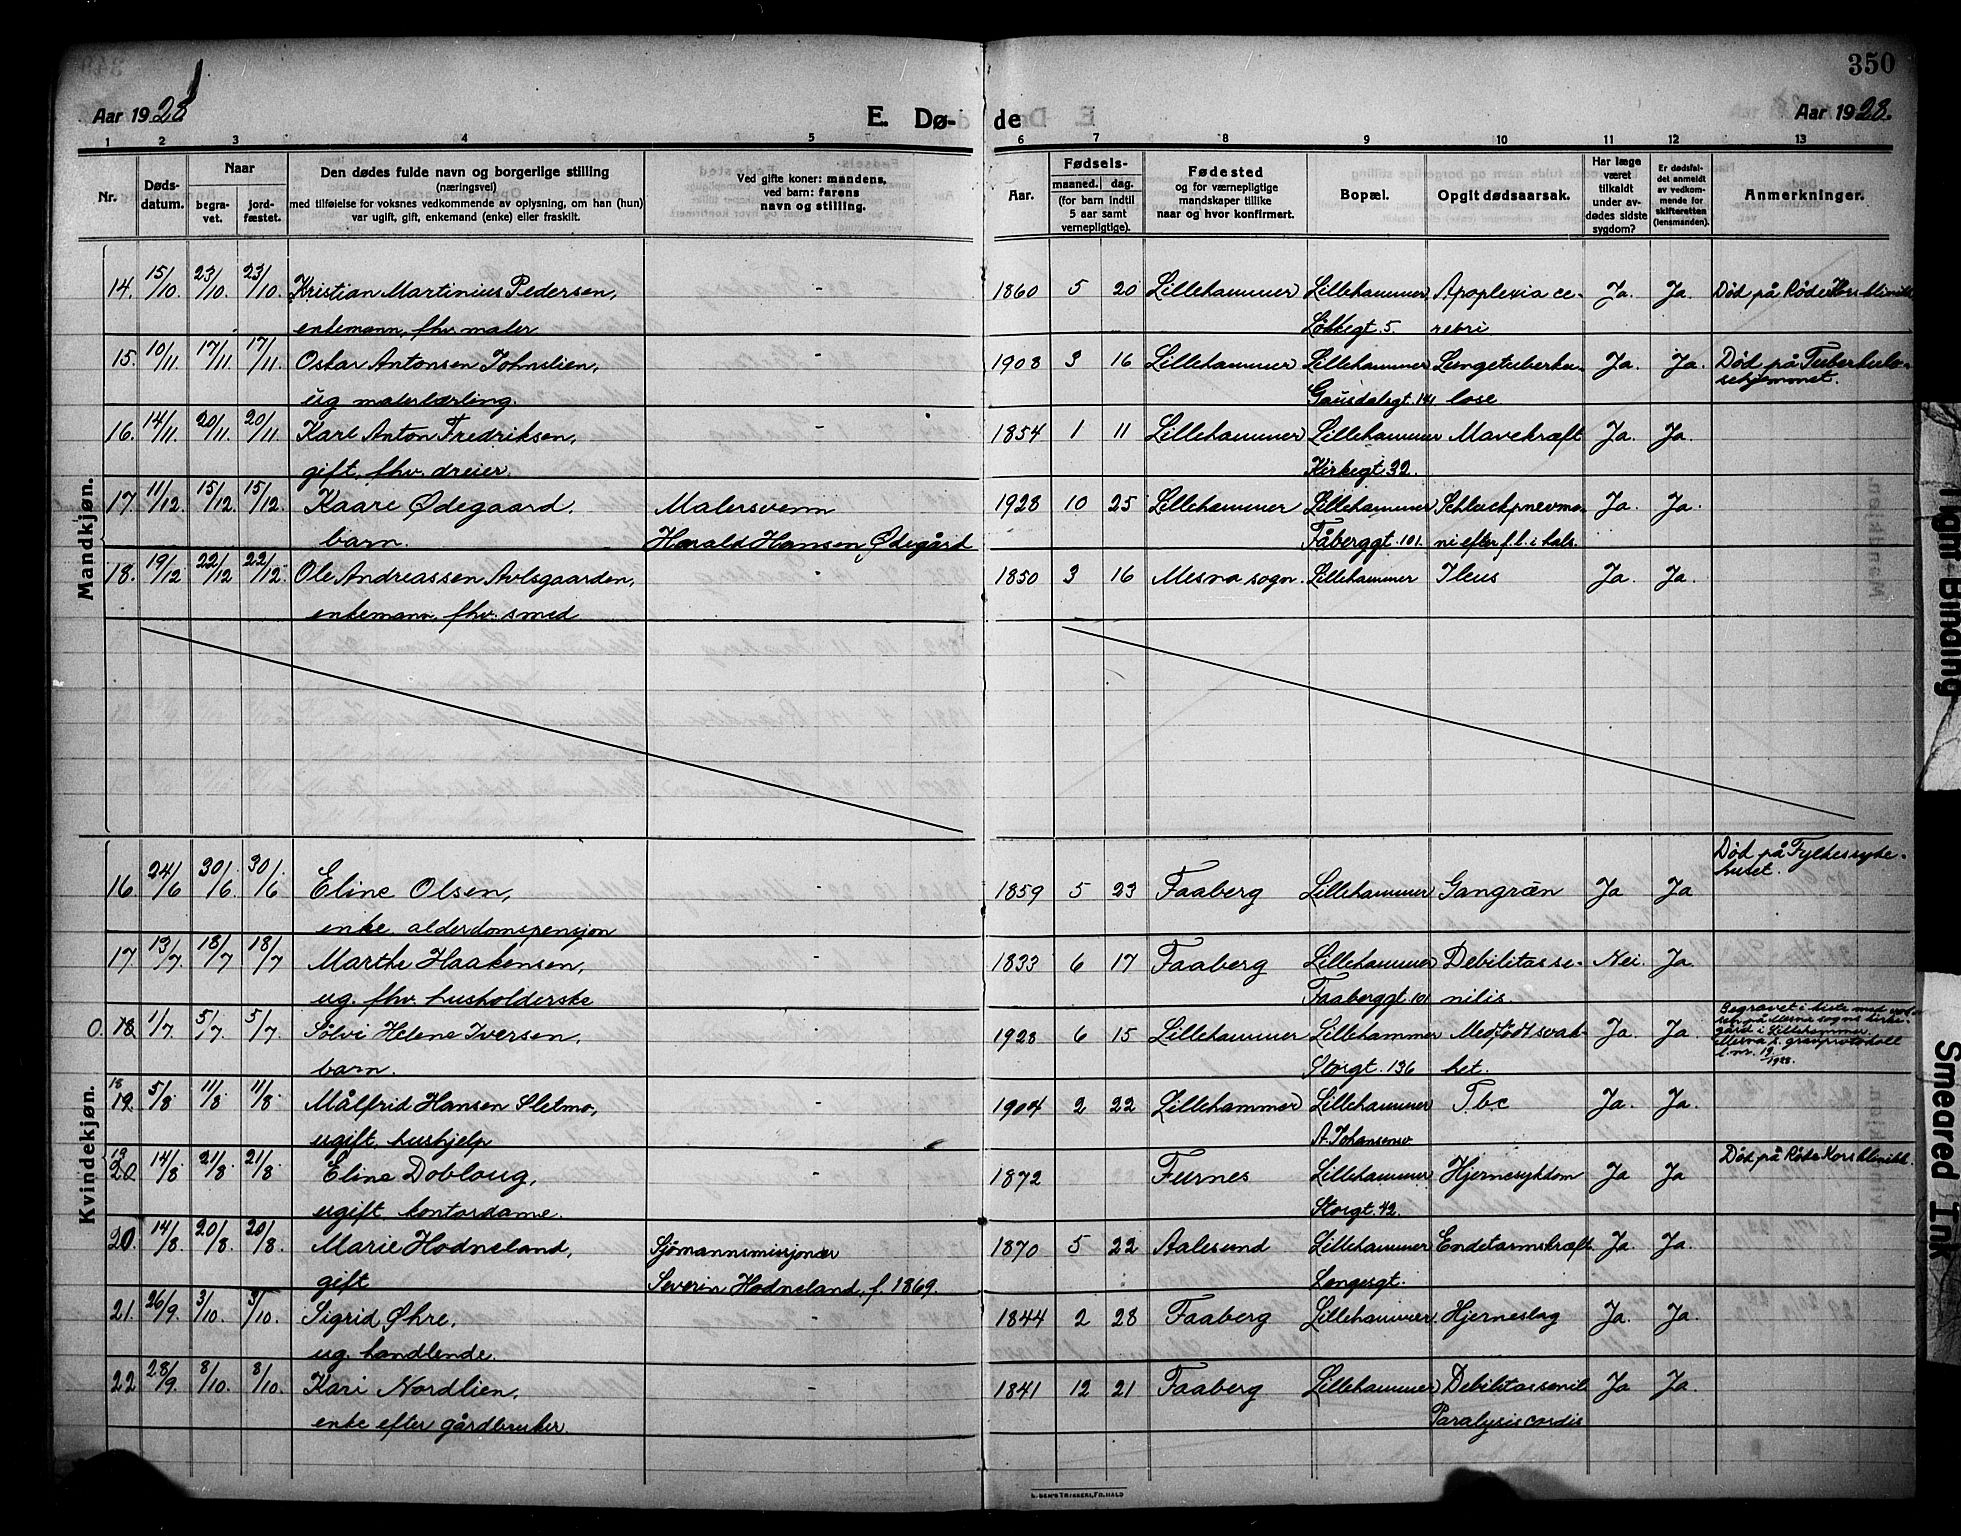 350
Aar 1928 E. Døde Aar 1928.
1 2 3 4 5 6 7 8 9 10 11 12 13
Nr. Døds-datum. Naar begravet. jordfæstet. Den dødes fulde navn og borgerlige stilling (næringsvei) med tilføielse for voksnes vedkommende av oplysning, om han (hun) var ugift, gift, enkemand (enke) eller fraskilt. Ved gifte koner: mandens, ved barn: farens navn og stilling. Aar. Fødsels- maaned. dag. (for barn indtil 5 aar samt vernepligtige). Fødested og for værnepligtige mandskaper tillike naar og hvor konfirmert. Bopæl. Opgit dødsaarsak. Har læge været tilkaldt under avdødes sidste sygdom? Er dødsfaldet anmeldt av vedkommende for skifteretten (lensmanden). Anmerkninger.
Mandkjøn.
14. 15/10 23/10. 23/10. Kristian Martinius Pedersen, - 1860 5 20 Lillehammer Lillehammer Apoplexia ce- Ja. Ja. Død på Røde Kors klinikk
enkemann, fhv. maler Løkkegt. 5. rebri
15. 10/11. 17/11. 17/11. Oskar Antonsen Johnslien, - 1908 3 16 Lillehammer Lillehammer Lungetuberku- Ja. Ja. Død på Tuberkulo-
sehjemmet.
ug. malerlærling. Gausdalsgt. 141 lose
16. 14/11. 20/11. 20/11. Karl Anton Fredriksen, - 1854 1 11 Lillehammer Lillehammer Mavekræft Ja. Ja.
gift, fhv. dreier. Kirkegt. 32.
17. 11/12. 15/12. 15/12. Kaare Ødegaard, Malersvenn 1928 10 25 Lillehammer Lillehammer Schluckpnevmo- Ja. Ja.
barn. Harald Hansen Ødegård Fåberggt. 101. ni efter f.l. i hals.
18. 19/12. 22/12 22/12. Ole Andreassen Avlsgaarden, - 1850 3 16 Mesna sogn. Lillehammer Ileus Ja. Ja.
enkemann, fhv. smed
Kvindekjøn.
16. 24/6 30/6. 30/6 Eline Olsen, - 1859 5 23 Faaberg Lillehammer Gangrän Ja Ja Død på Fylkessyke-
huset.
enke, alderdomspensjon
17. 13/7. 18/7 18/7 Marthe Haakensen, - 1833 6 17 Faaberg Lillehammer Debilitas se- Nei. Ja.
ug. fhv. husholderske Faaberggt. 101 nilis.
0. 18. 1/7. 5/7 5/7 Sølvi Helene Iversen, - 1928 6 15 Lillehammer Lillehammer Medfødt svak- Ja. Ja. Begravet i kiste med
på Mesna sogns kirke-
gård i Lillehammer.
Mesna s. gravprotokoll
l. nr. 19/1928.
barn. Storgt. 136 het.
18 19. 5/8. 11/8 11/8. Målfrid Hansen Sletmo, - 1904 2 22 Lillehammer Lillehammer T.b.c Ja. Ja.
ugift, hushjelp A. Johansensv.
19 20. 14/8. 21/8. 21/8. Eline Dobloug, - 1872 Furnes Lillehammer Hjernesykdom Ja Ja Død på Røde Kors klinikk.
ugift, kontordame. Storgt. 42.
20. 14/8. 20/8. 20/8. Marie Hodneland, Sjømannsmisjonær 1870 5 22 Aalesund Lillehammer Endetarmskræft Ja. Ja.
gift Severin Hodneland, f. 1869. Langesgt.
21. 26/9. 3/10. 3/10. Sigrid Øhre, - 1844 2 28 Faaberg Lillehammer. Hjerneslag Ja. Ja.
ug. handlende.
22 28/9. 8/10. 8/10. Kari Nordlien, - 1841 12 21 Faaberg Lillehammer Debilitas senil. Ja Ja.
enke efter gårdbruker. Paralysis cordis
Tight Binding
Smeared Ink